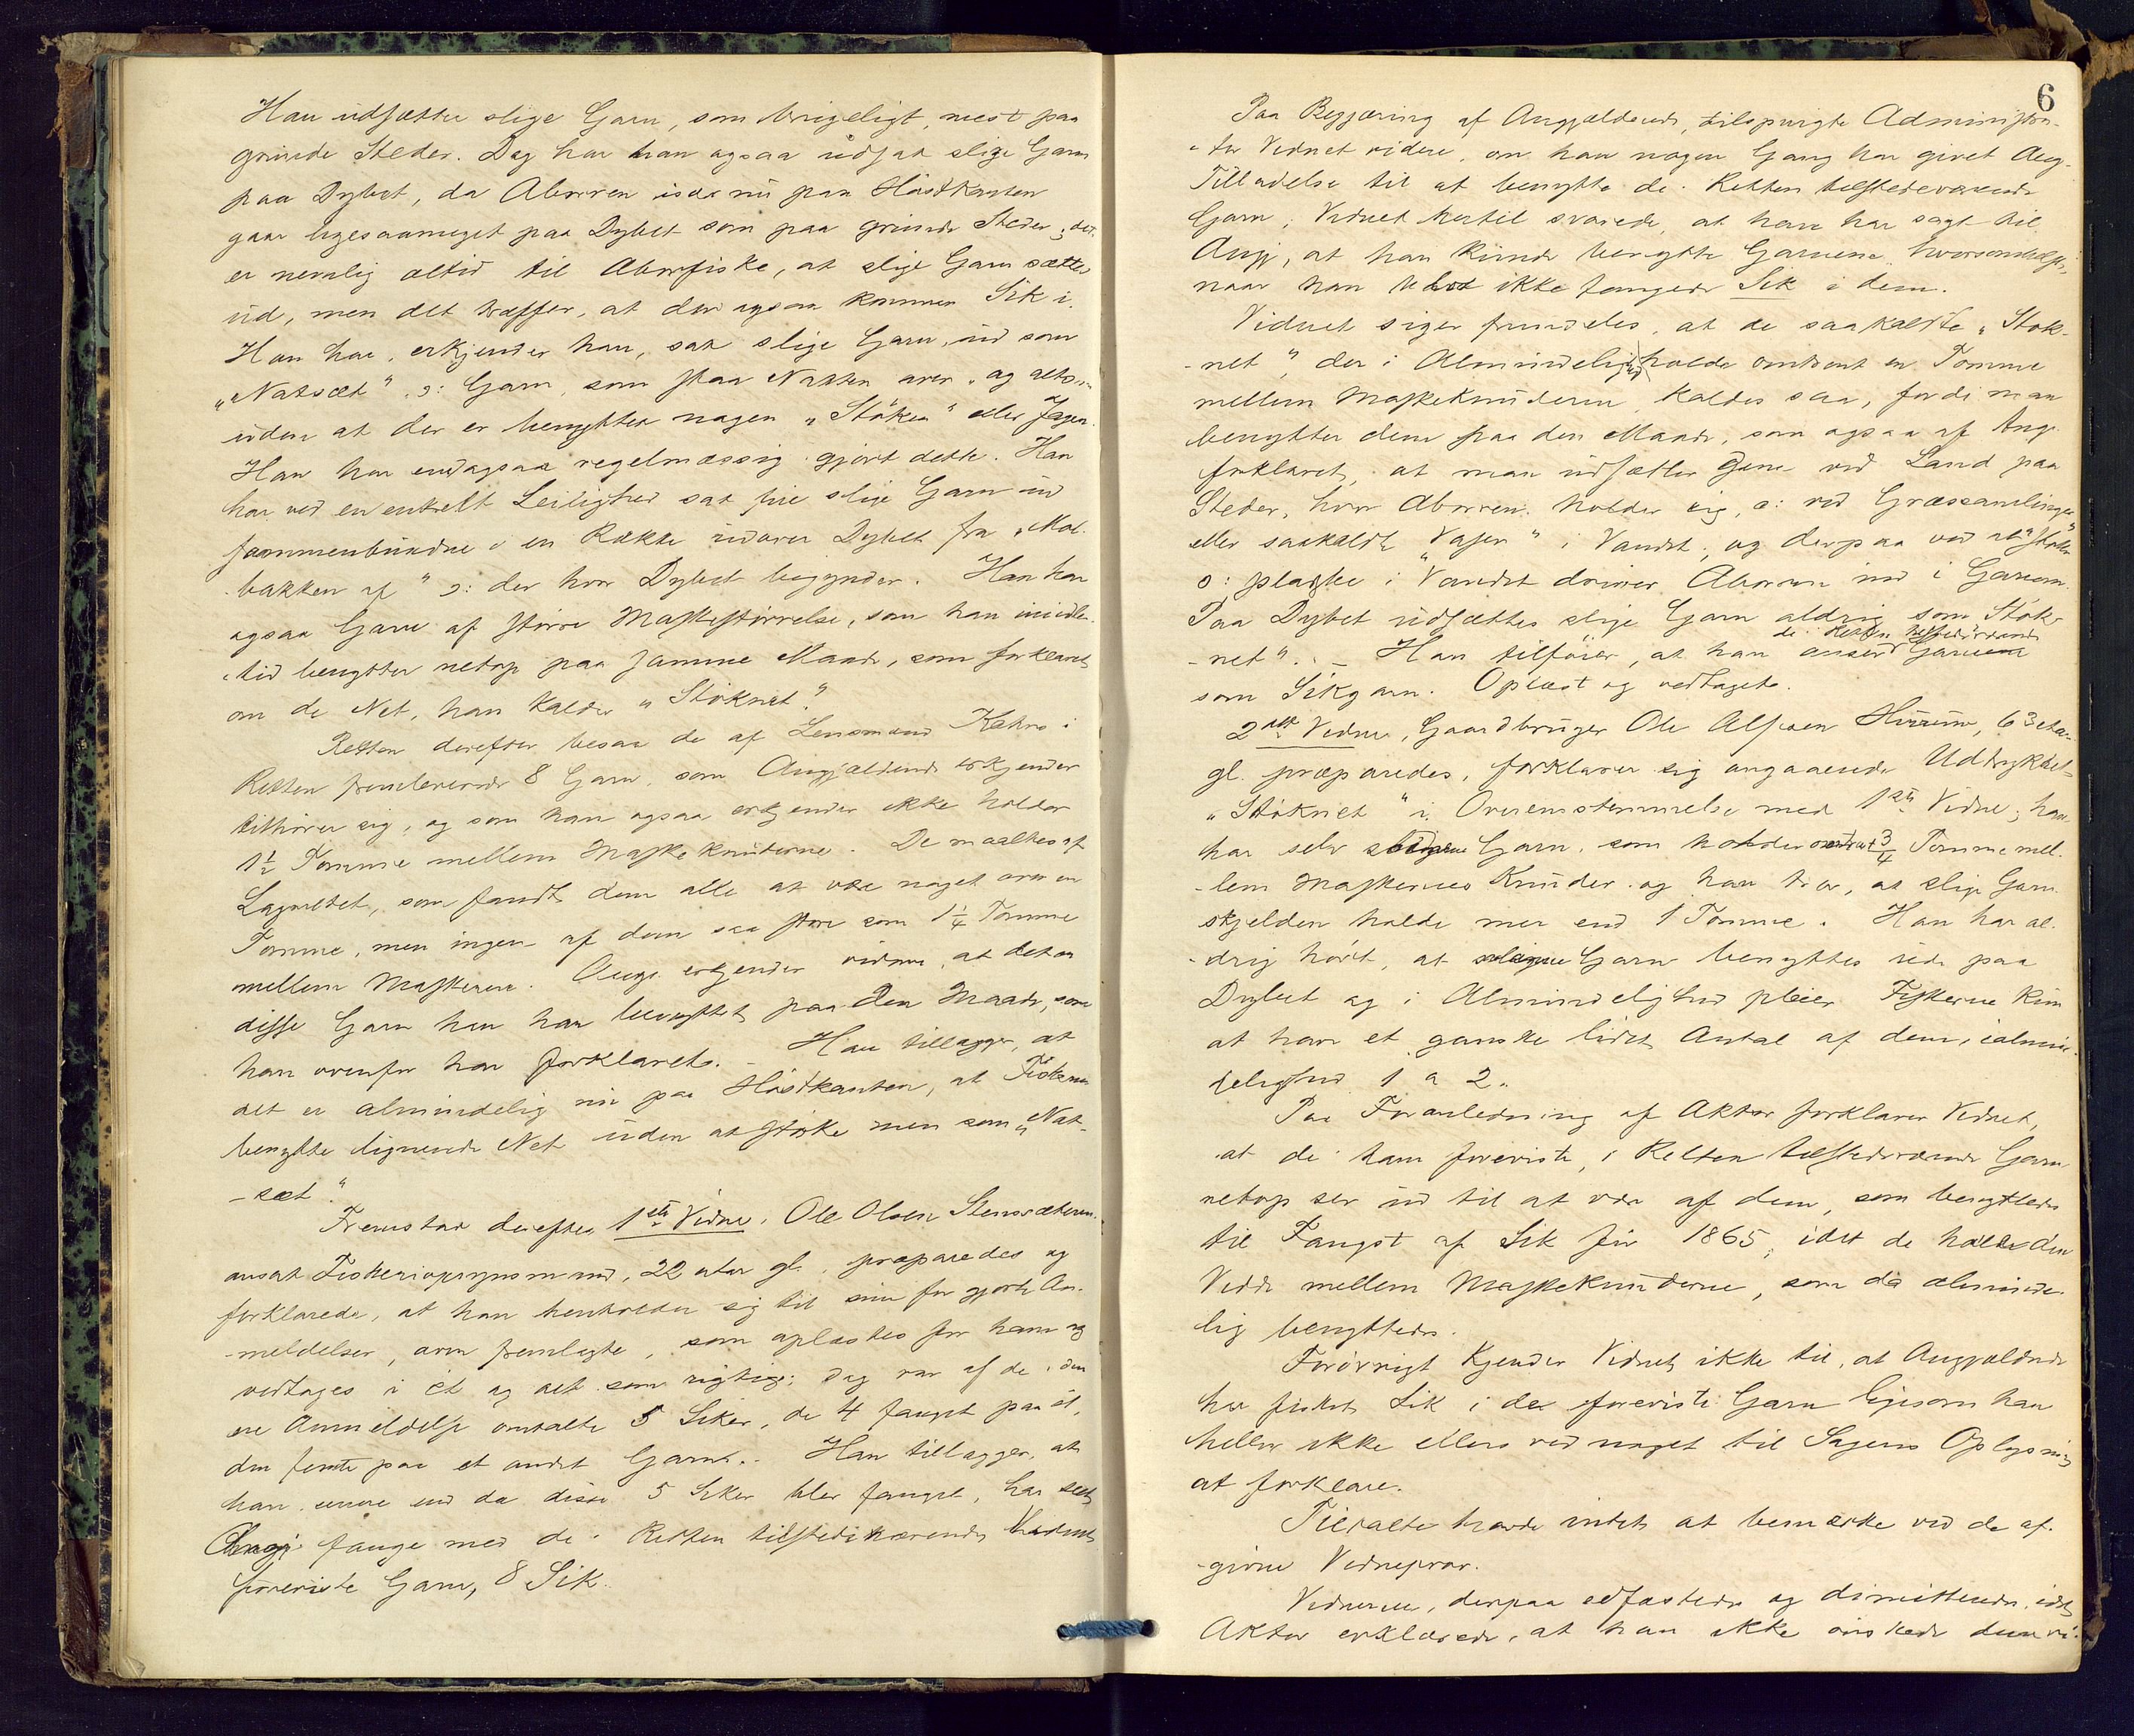 Han udsætter slige Garn, som brigeligt, mest paa
grunde Steder. Dog har han ogsaa udsat slige Garn
paa Dybet, da Aborren især nu paa Höstkanten
gaar ligesaameget paa Dybet som paa grunde Steder; det
er nemlig altid til Aborfiske, at slige Garn sættes
ud, men det træffer, at der ogsaa kommer Sik i.
Han har, erkjender han, sat slige Garn ud som
"Natsæt" ɔ: Garn, som staar Natten over og altsaa
uden at der er benyttet nogen "Stöken" eller Jagen.
Han har endogsaa regelmæssig gjort dette. Han
har ved en enkelt Leilighed sat fire slige Garn ud
sammenbundne i en Række udover Dybet fra "Mal-
bakken af" ɔ: der hvor Dybet begynder. Han har
ogsaa Garn af större Maskestörrelse, som han imidler-
tid benytter netop paa samme Maade, som forklaret
om de Net, han kalder "Stöknet".
Retten derefter besaa de af Lensmand i
Retten fremleverede 8 Garn, som Angjældende erkjender
tilhører sig, og som han ogsaa erkjender ikke holder
1½ Tomme mellem Maskeknuderne. De maaltes af
Lagrettet, som fandt dem alle at være noget over en
Tomme, men ingen af dem saa store som 1¼ Tomme
mellem Maskerne. Angj. erkjender videre, at det er
disse Garn han har benyttet paa den Maade, som
han ovenfor har forklaret. – Han tillægger, at
det er almindelig nu paa Höstkanten, at Fiskerne
benytte lignende Net uden at stöke men som "Nat-
-sæt".
Fremstod derefter 1ste Vidne, Ole Olsen
ansat Fiskeriopsynsmand, 22 aar gl. præparedes og
forklarede, at han henholder sig til sine for gjorte An-
-meldelser, som fremlagte, som oplæstes for ham og
vedtages i et og alt som rigtige; dog var af de i den
ene Anmeldelse omtalte 5 Siker, de 4 fanget paa ét,
den femte paa et andet Garn. – Han tillægger, at
han senere end da disse 5 Siker blev fanget, har seet
Angj. fange med de i Retten tilstedeværende Vidnet
foreviste Garn, 8 Sik.
6
Paa Begjæring af Angjældende, tilspurgte Administra-
-tor Vidnet videre, om han nogen Gang har givet Ang.
Tilladelse til at benytte de i Retten tilstedeværende
Garn; Vidnet hertil svarede, at han har sagt til
Angj, at han kunde benytte Garnene hvorsomhelst,
naar han blot ikke fangede Sik i dem.
Vidnet siger fremdeles, at de saakaldte "Stök-
-net", der i Almindelighed holde omtrent en Tomme
mellem Maskeknuderne, kaldes saa, fordi man
benytter dem paa den Maade, som ogsaa af Ang.
forklaret, at man udsætter dem ved Land paa
Steder, hvor Aborren holder sig, ɔ: ved Græssamlinger
eller saakaldte "Vaser" i Vandet, og derpaa ved at "stöke"
ɔ: plaske i Vandet driver Aborren ind i Garnene.
Paa Dybet udsættes slige Garn aldrig som Stök-
de i Retten tilstedeværende
-net". – Han tilföier, at han anser Garnene
som Sikgarn. Oplæst og vedtaget.
2det Vidne, Gaardbruger Ole Alfsen 63 aar
gl. præparedes, forklarer sig angaaende Udtrykket
"Stöknet" i Overensstemmelse med 1ste Vidne; han
har selv Garn, som holder omtrent ¾ Tomme mel-
-lem Maskernes Knuder og han tror, at slige Garn
skjelden holde mer end 1 Tomme. Han har al-
-drig hört, at Garn benyttes ude paa
Dybet og i Almindelighed pleier Fiskerne kun
at have et ganske lidet Antal af dem, i almin-
delighed 1 a 2.
Paa Foranledning af Aktor forklarer Vidnet,
at de ham foreviste, i Retten tilstedeværende Garn
netop ser ud til at være af dem, som benyttedes
til Fangst af Sik för 1865, idet de holde den
Vidde mellem Maskeknuderne, som da alminde-
lig benyttedes.
Forövrigt kjender Vidnet ikke til, at Angjældende
har fisket Sik i de foreviste Garn ligesom han
heller ikke ellers ved noget til Sagens Oplysning
at forklare.
Tiltalte havde intet at bemærke ved de af-
-givne Vidneprov.
Vidnerne, derpaa edfæstedes og dimitteredes, idet
Aktor erklærede, at han ikke önskede dem vi-